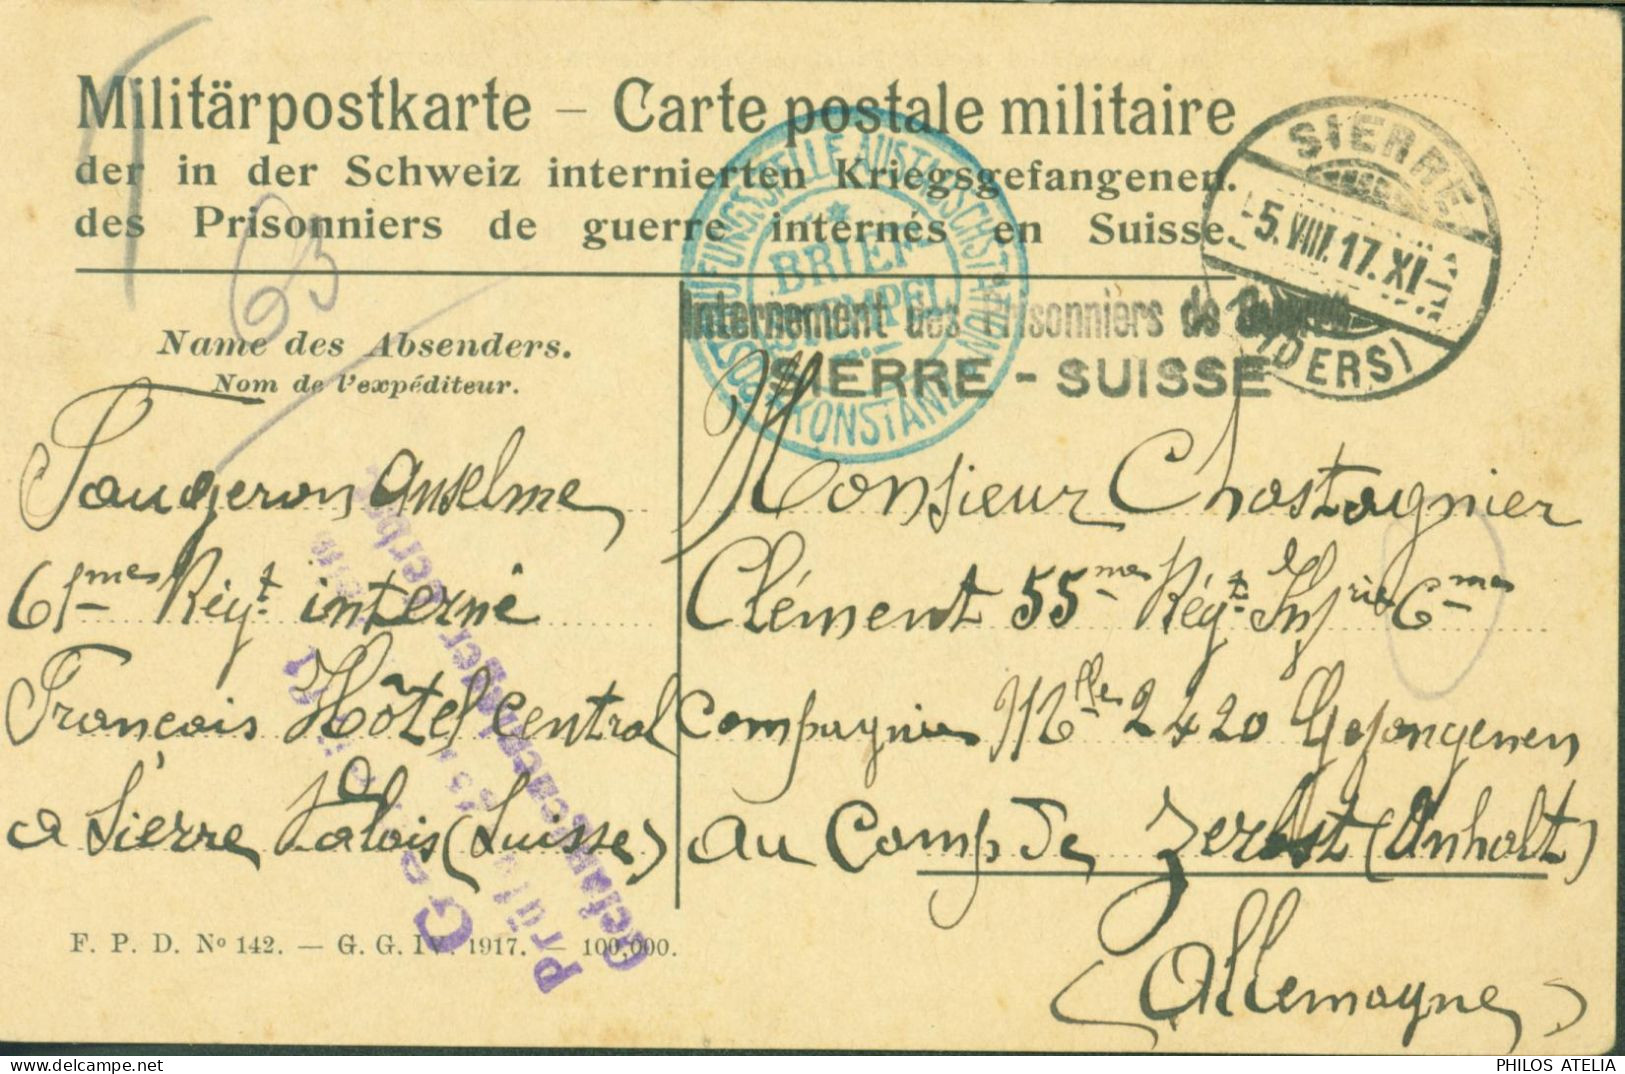 Militärpostkarte – Carte postale militaire
der in der Schweiz internierten Kriegsgefangenen.
des Prisonniers de guerre internés en Suisse.
SIERRE
-5.VIII.17.XI
(SIDERS)
BRIEF
STEMPEL
KONSTANZ
Internement des Prisonniers de Guerre
SIERRE - SUISSE
Name des Absenders.
Nom de l'expéditeur.
63
Faugeron Anselme
61mes Régt. interné
Français Hôtel Central
a Sierre Valais (Suisse)
Monsieur Chastagnier
Clément 55mes Régt. Infrie 6mes
Compagnies Mlle 2420 Gefangenen
au Camp de Zerbst (Anhalt)
(Allemagne)
Geprüft
Gefangenenlager Zerbst
F. P. D. No 142. — G. G. IV. 1917. — 100,000.
PHILOS ATELIA